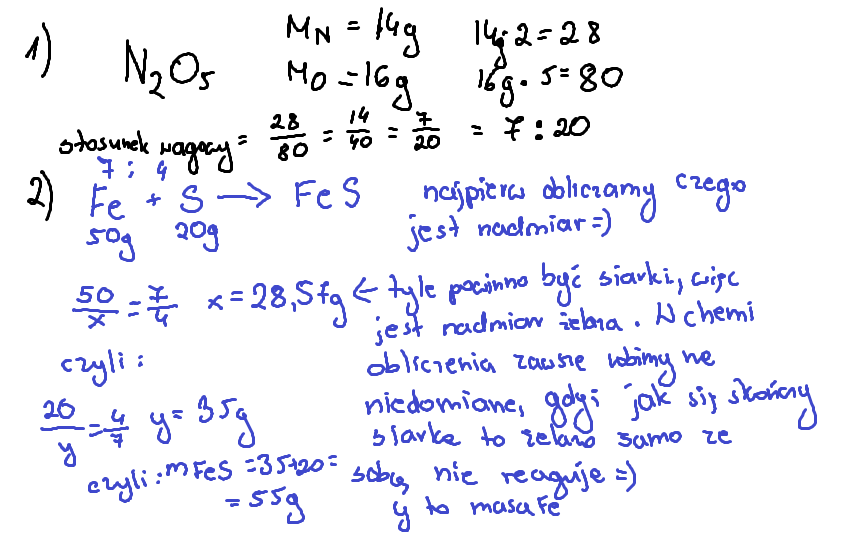 1) N₂O₅ M_N = 14g 14g·2 = 28
M_O = 16g 16g·5 = 80
stosunek wagowy = 28/80 = 14/40 = 7/20 = 7 : 20
7 : 4
2) Fe + S → FeS najpierw obliczamy czego
50g 20g jest nadmiar =)
50/x = 7/4 x = 28,57g ← tyle powinno być siarki, więc
jest nadmiar żelaza. W chemi
czyli: obliczenia zawsze robimy na
20/y = 4/7 y = 35g niedomiarze, gdyż jak się skończy
siarka to żelazo samo ze
czyli: mFeS = 35+20 = sobą nie reaguje =)
= 55g y to masa Fe